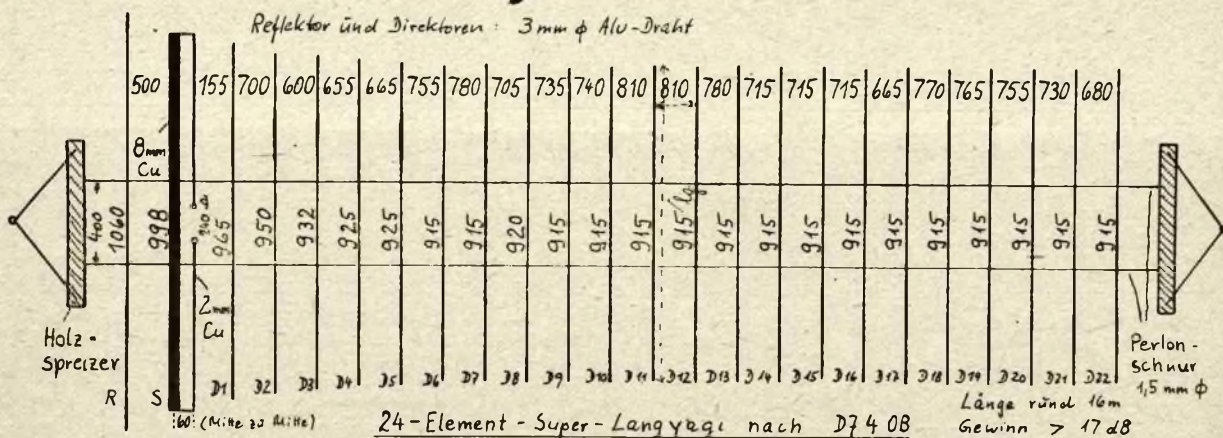 Reflektor und Direktoren: 3mm ϕ Alu-Draht
500 155 700 600 655 665 755 780 705 735 740 810 810 780 715 715 715 665 770 765 755 730 680
8mm
Cu
400 1060 998 240 Ω 965 950 932 925 925 915 915 920 915 915 915 915 lg 915 915 915 915 915 915 915 915 915 915
2mm
Cu
Holz-
spreizer
Perlon-
schnur
1,5 mm ϕ
R S D1 D2 D3 D4 D5 D6 D7 D8 D9 D10 D11 D12 D13 D14 D15 D16 D17 D18 D19 D20 D21 D22
60 (Mitte zu Mitte)
24-Element-Super-Langyagi nach DJ4OB
Länge rund 16m
Gewinn > 17 dB